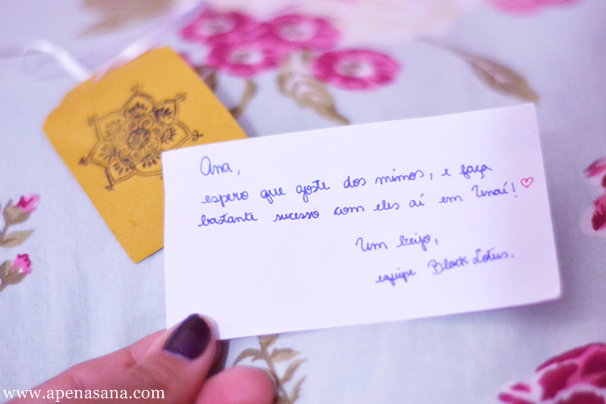 Ana,
espero que goste dos mimos, e faça
bastante sucesso com eles aí em Unaí!
Um beijo,
equipe Black Lotus.
www.apenasana.com